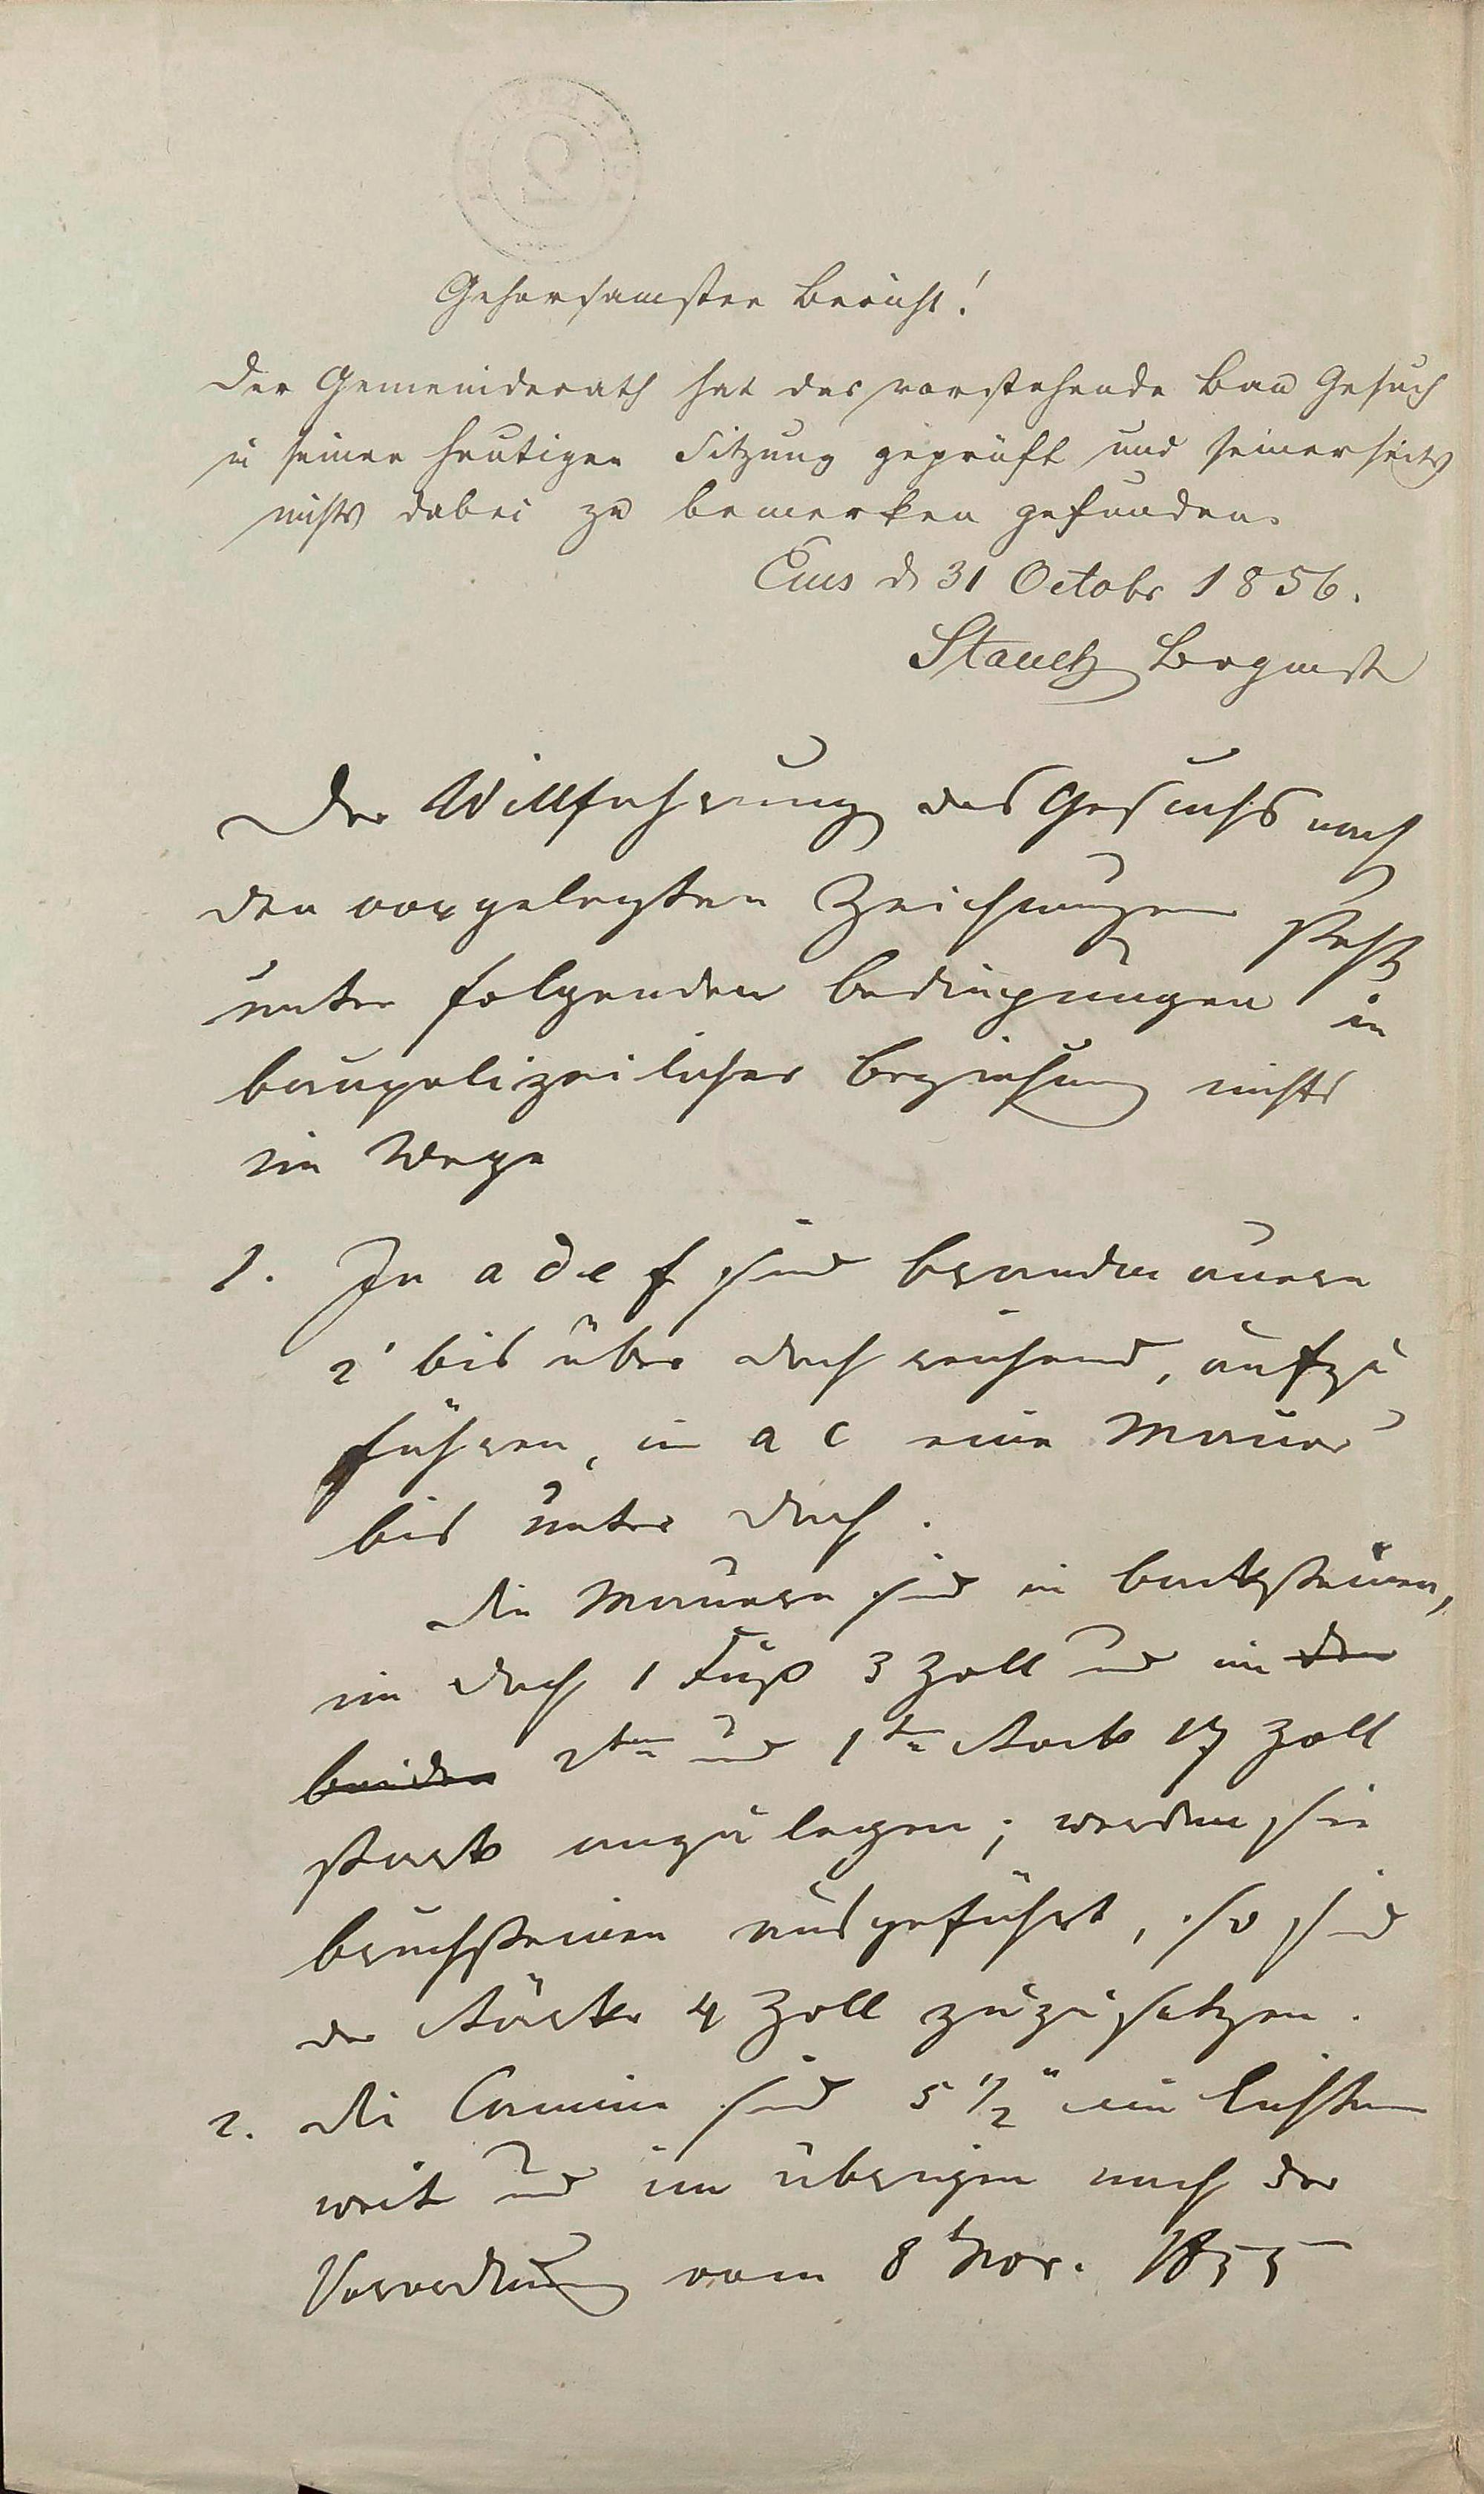 Gehorsamster Bericht!
Der Gemeinderath hat das vorstehende Bau Gesuch
in seiner heutigen Sitzung geprüft und seinerseits
nichts dabei zu bemerken gefunden.
Ems d 31 Octobr 1856.
Der Willfahrung des Gesuchs nach
den vorgelegten Zeichnungen steht
unter folgenden Bedingungen in
baupolizeilicher Beziehung nichts
im Wege
1. In a d e f sind Brandmauern
2' bis über Dach reichend, aufzu
führen, in a c eine Mauer
bis unter Dach.
Die Mauern sind in Backsteinen,
im Dach 1 Fuß 3 Zoll und im den
beiden 2ten und 1ten Stock 17 Zoll
stark anzulegen; werden sie
Bruchsteinen ausgeführt, so sind
der Stärke 4 Zoll zuzusetzen.
2. Die Camine sind 5 1/2" im Lichten
weit und im übrigen nach der
Verordnung vom 8t Nov. 1855